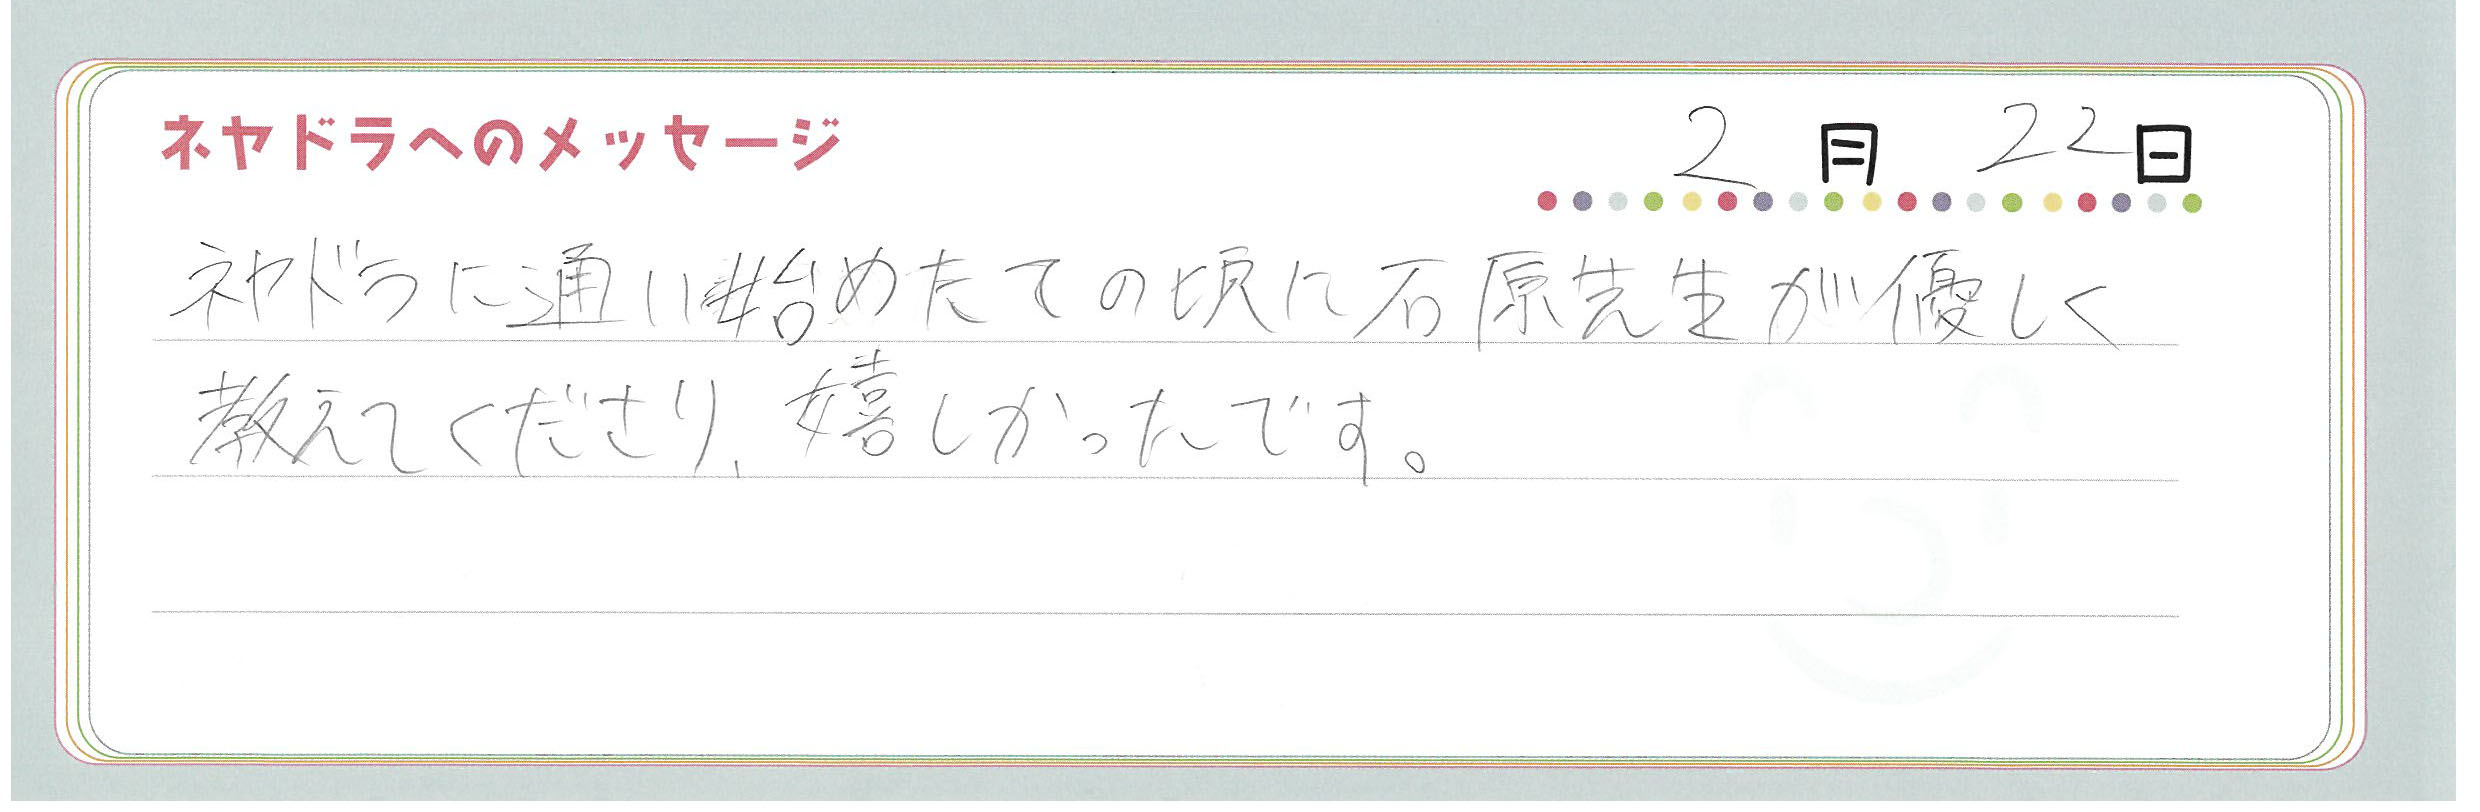 ネヤドラへのメッセージ
2月 22日
ネヤドラに通い始めたての頃に石原先生が優しく
教えてくださり、嬉しかったです。